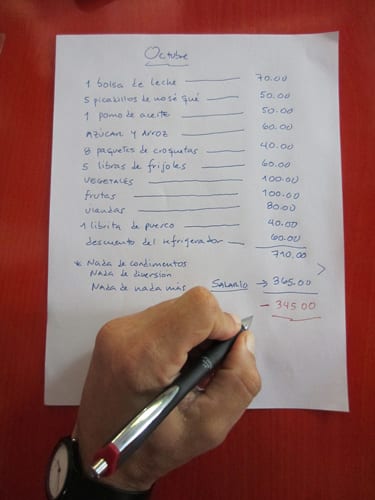 Octubre
1 bolsa de leche 70.00
5 picadillos de no sé qué 50.00
1 pomo de aceite 50.00
AZÚCAR Y ARROZ 60.00
8 paquetes de croquetas 40.00
5 libras de frijoles 60.00
VEGETALES 100.00
frutas 100.00
viandas 80.00
1 librita de puerco 40.00
descuento del refrigerador 60.00
710.00
* Nada de condimentos
Nada de diversión
Nada de nada más SALARIO → 365.00
- 345.00